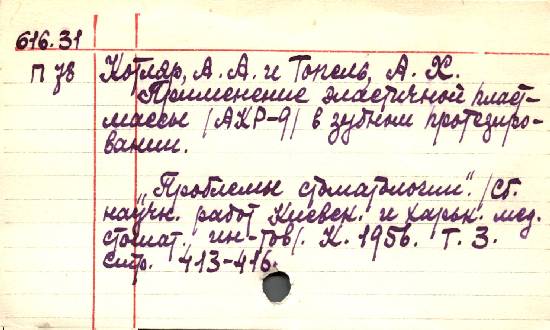 616.31
П 78 Котляр, А. А. и Топель, А. Х.
Применение эластичной пласт-
массы /АКР-9/ в зубном протезиро-
вании.
„Проблемы стоматологии". /Сб.
научн. работ Киевск. и харьк. мед.
стомат. ин-тов/. К. 1956. Т. 3.
Стр. 413-416.